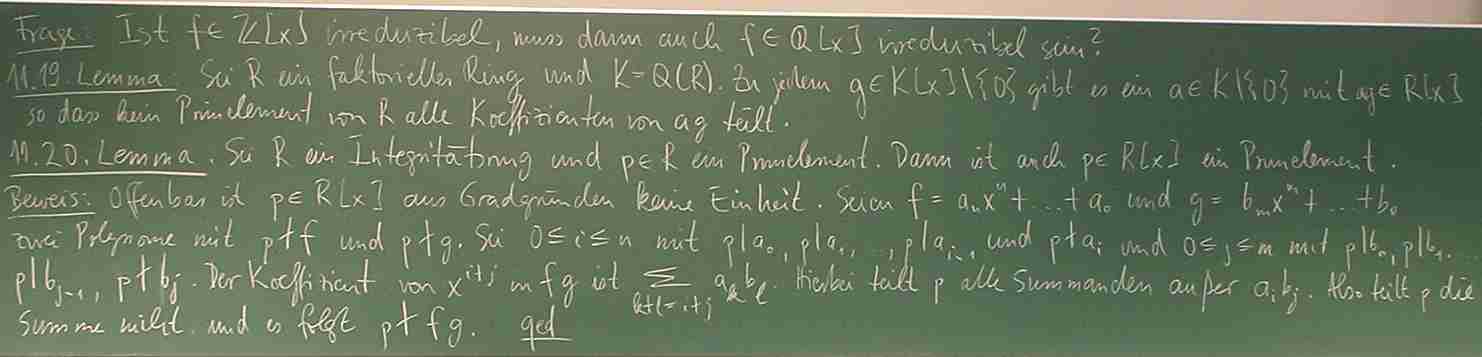 Frage: Ist f ∈ ℤ[x] irreduzibel, muss dann auch f ∈ ℚ[x] irreduzibel sein?
11.19. Lemma: Sei R ein faktorieller Ring und K = Q(R). Zu jedem g ∈ K[x]\{0} gibt es ein a ∈ K\{0} mit ag ∈ R[x]
so dass kein Primelement von R alle Koeffizienten von ag teilt.
11.20. Lemma. Sei R ein Integritätsring und p ∈ R ein Primelement. Dann ist auch p ∈ R[x] ein Primelement.
Beweis: Offenbar ist p ∈ R[x] aus Gradgründen keine Einheit. Seien f = aₙxⁿ + ... + a₀ und g = bₘxᵐ + ... + b₀
zwei Polynome mit p∤f und p∤g. Sei 0 ≤ i ≤ n mit p|a₀, p|a₁, ..., p|aᵢ₋₁ und p∤aᵢ und 0 ≤ j ≤ m mit p|b₀, p|b₁, ...
p|bⱼ₋₁, p∤bⱼ. Der Koeffizient von xⁱ⁺ʲ in fg ist ∑_{k+l=i+j} aₖbₗ. Hierbei teilt p alle Summanden außer aᵢbⱼ. Also teilt p die
Summe nicht und es folgt p∤fg. qed